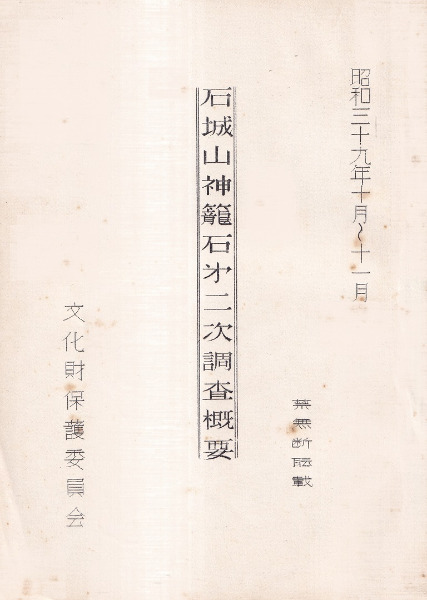 昭和三十九年十月～十一月
石城山神籠石㐧二次調査概要
禁無断転載
文化財保護委員会